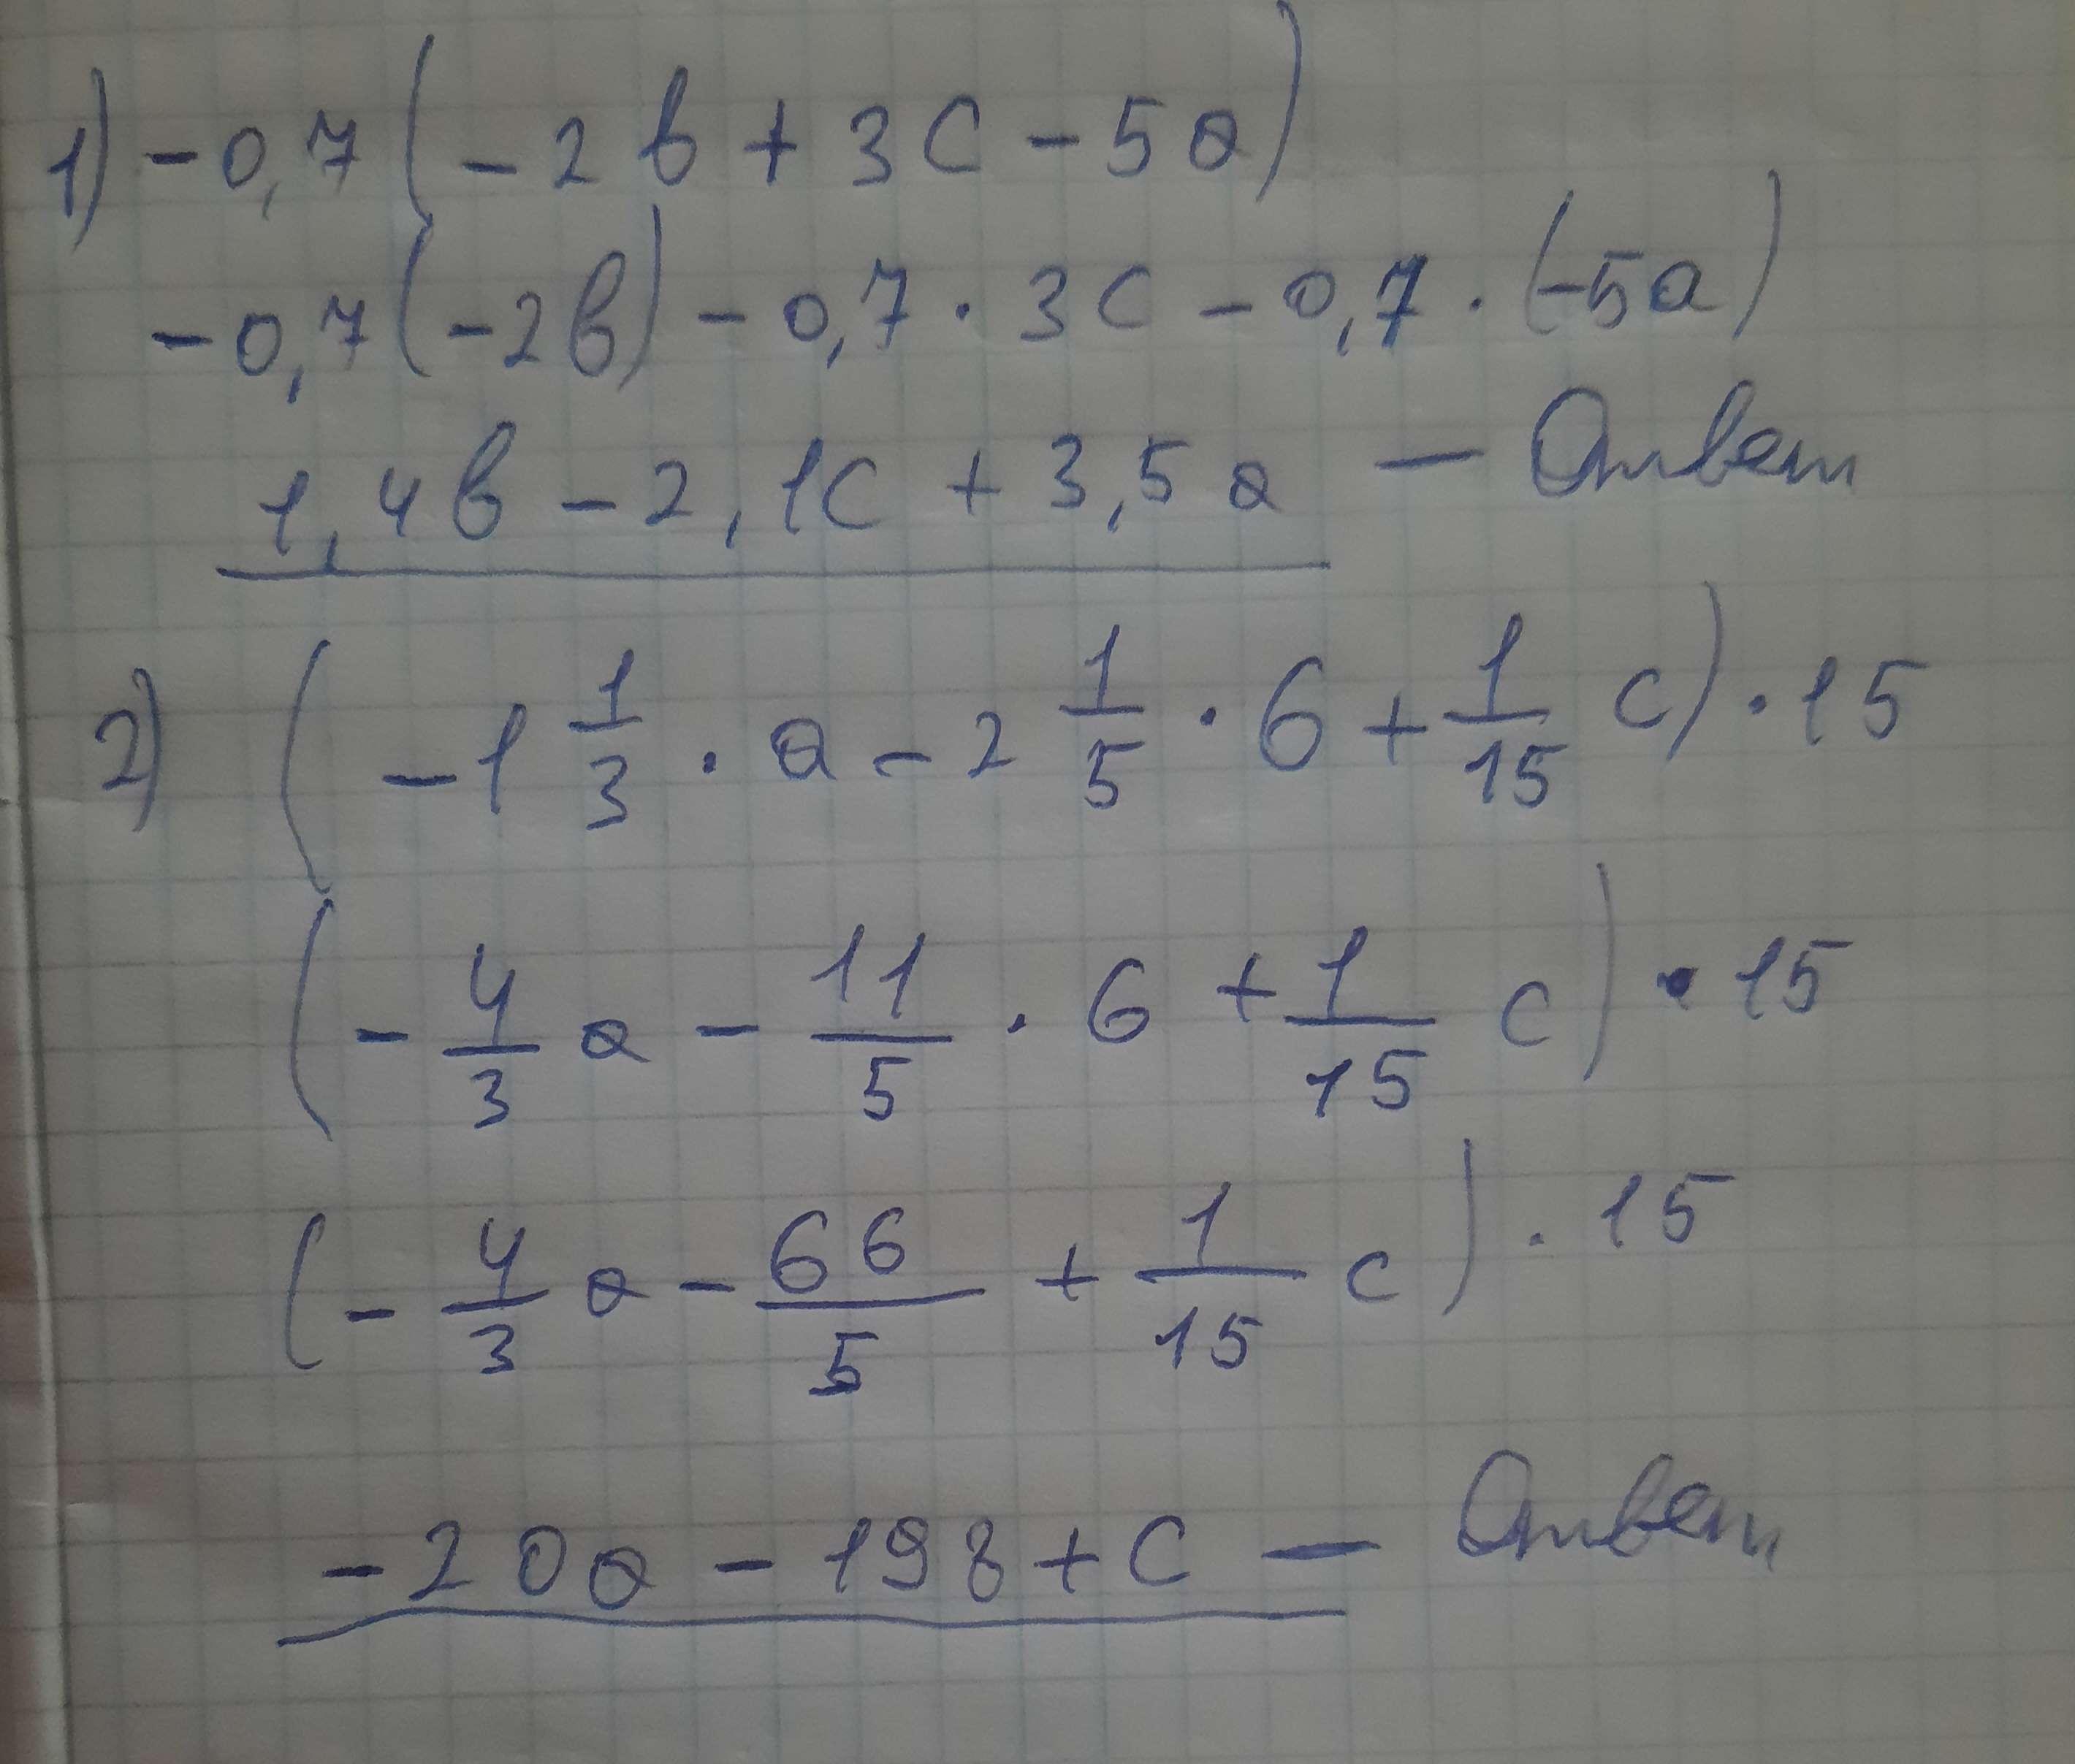 1) -0,7(-2в + 3c - 5a)
-0,7(-2в) - 0,7 · 3c - 0,7 · (-5a)
1,4в - 2,1c + 3,5a — Ответ
2) (-1 1/3 · a - 2 1/5 · 6 + 1/15 c) · 15
(-4/3 a - 11/5 · 6 + 1/15 c) · 15
(-4/3 a - 66/5 + 1/15 c) · 15
-20a - 198 + c — Ответ